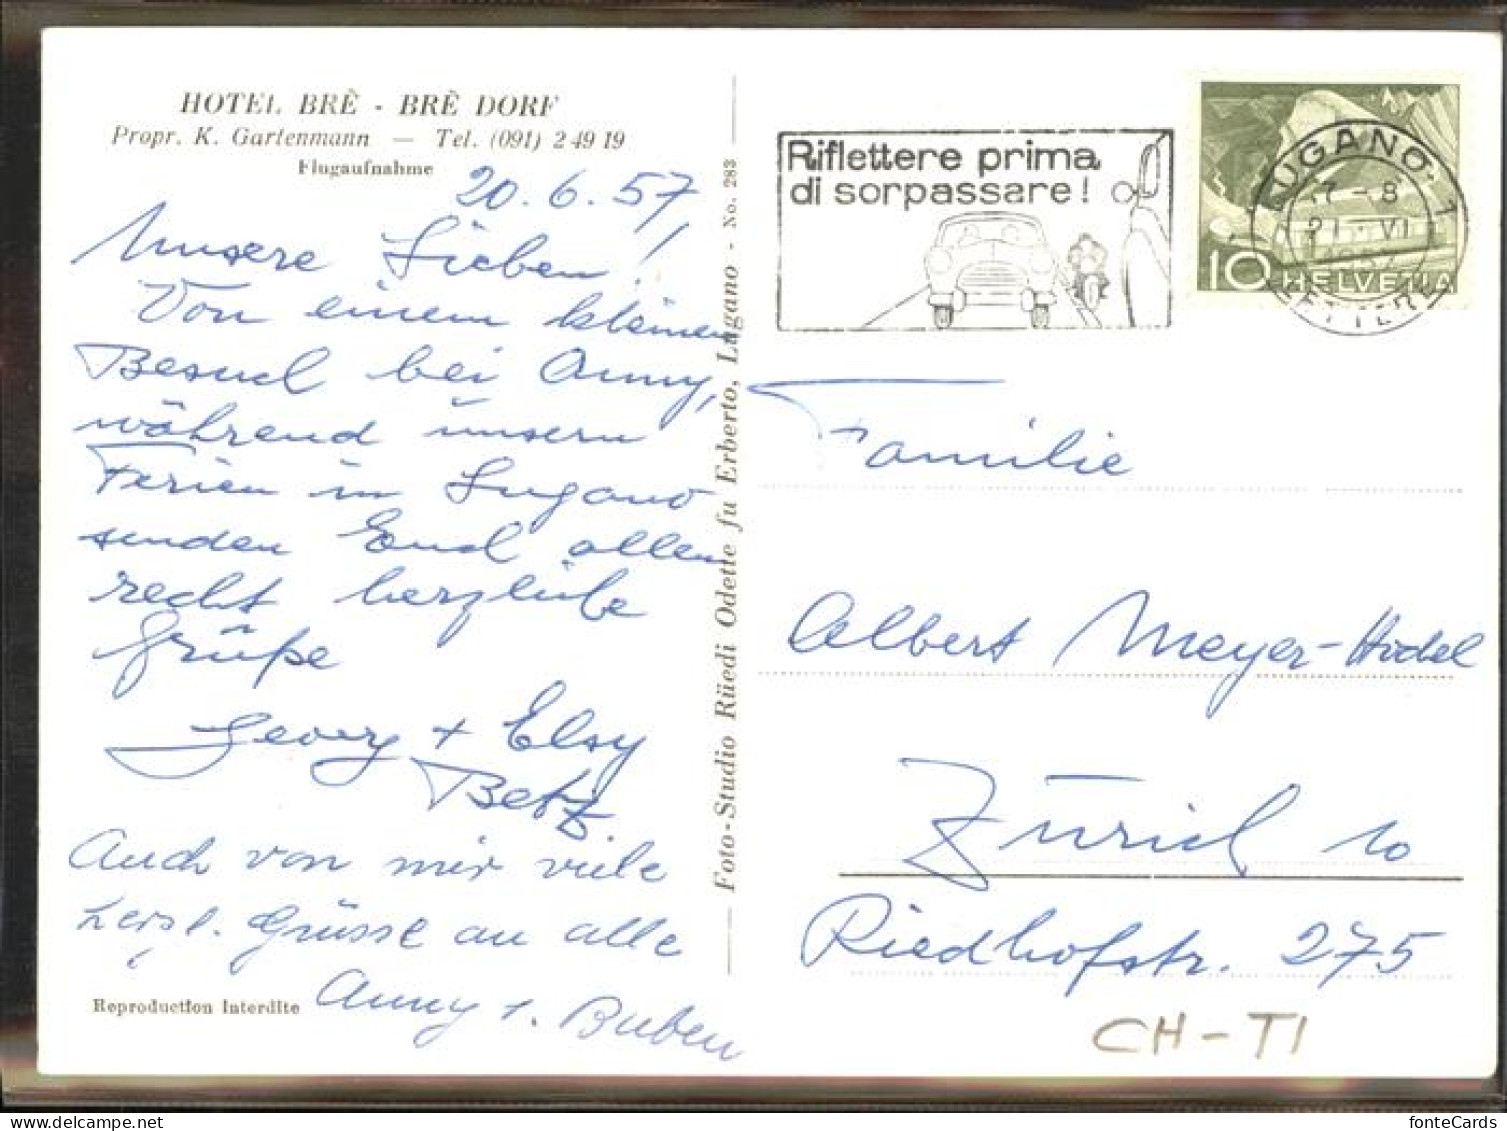 HOTEL BRÈ - BRÈ DORF
Propr. K. Gartenmann — Tel. (091) 2 49 19
Flugaufnahme
20. 6. 57
Unsere Lieben!
Von einem kleinen
Besuch bei Anny,
während unsern
Ferien in Lugano
senden Euch allen
recht herzliche
Grüße
Georg + Elsy
Betz.
Auch von mir viele
herzl. Grüsse an alle
Anny + Buben
Reproduction Interdite
Foto-Studio Rüedi Odette fu Erberto, Lugano - No. 283
Riflettere prima
di sorpassare!
LUGANO 1
7-8
21. VI
LETTERE
10 HELVETIA
Familie
Albert Meyer-Hodel
Zürich 10
Riedhofstr. 275
CH-TI
fonteCards